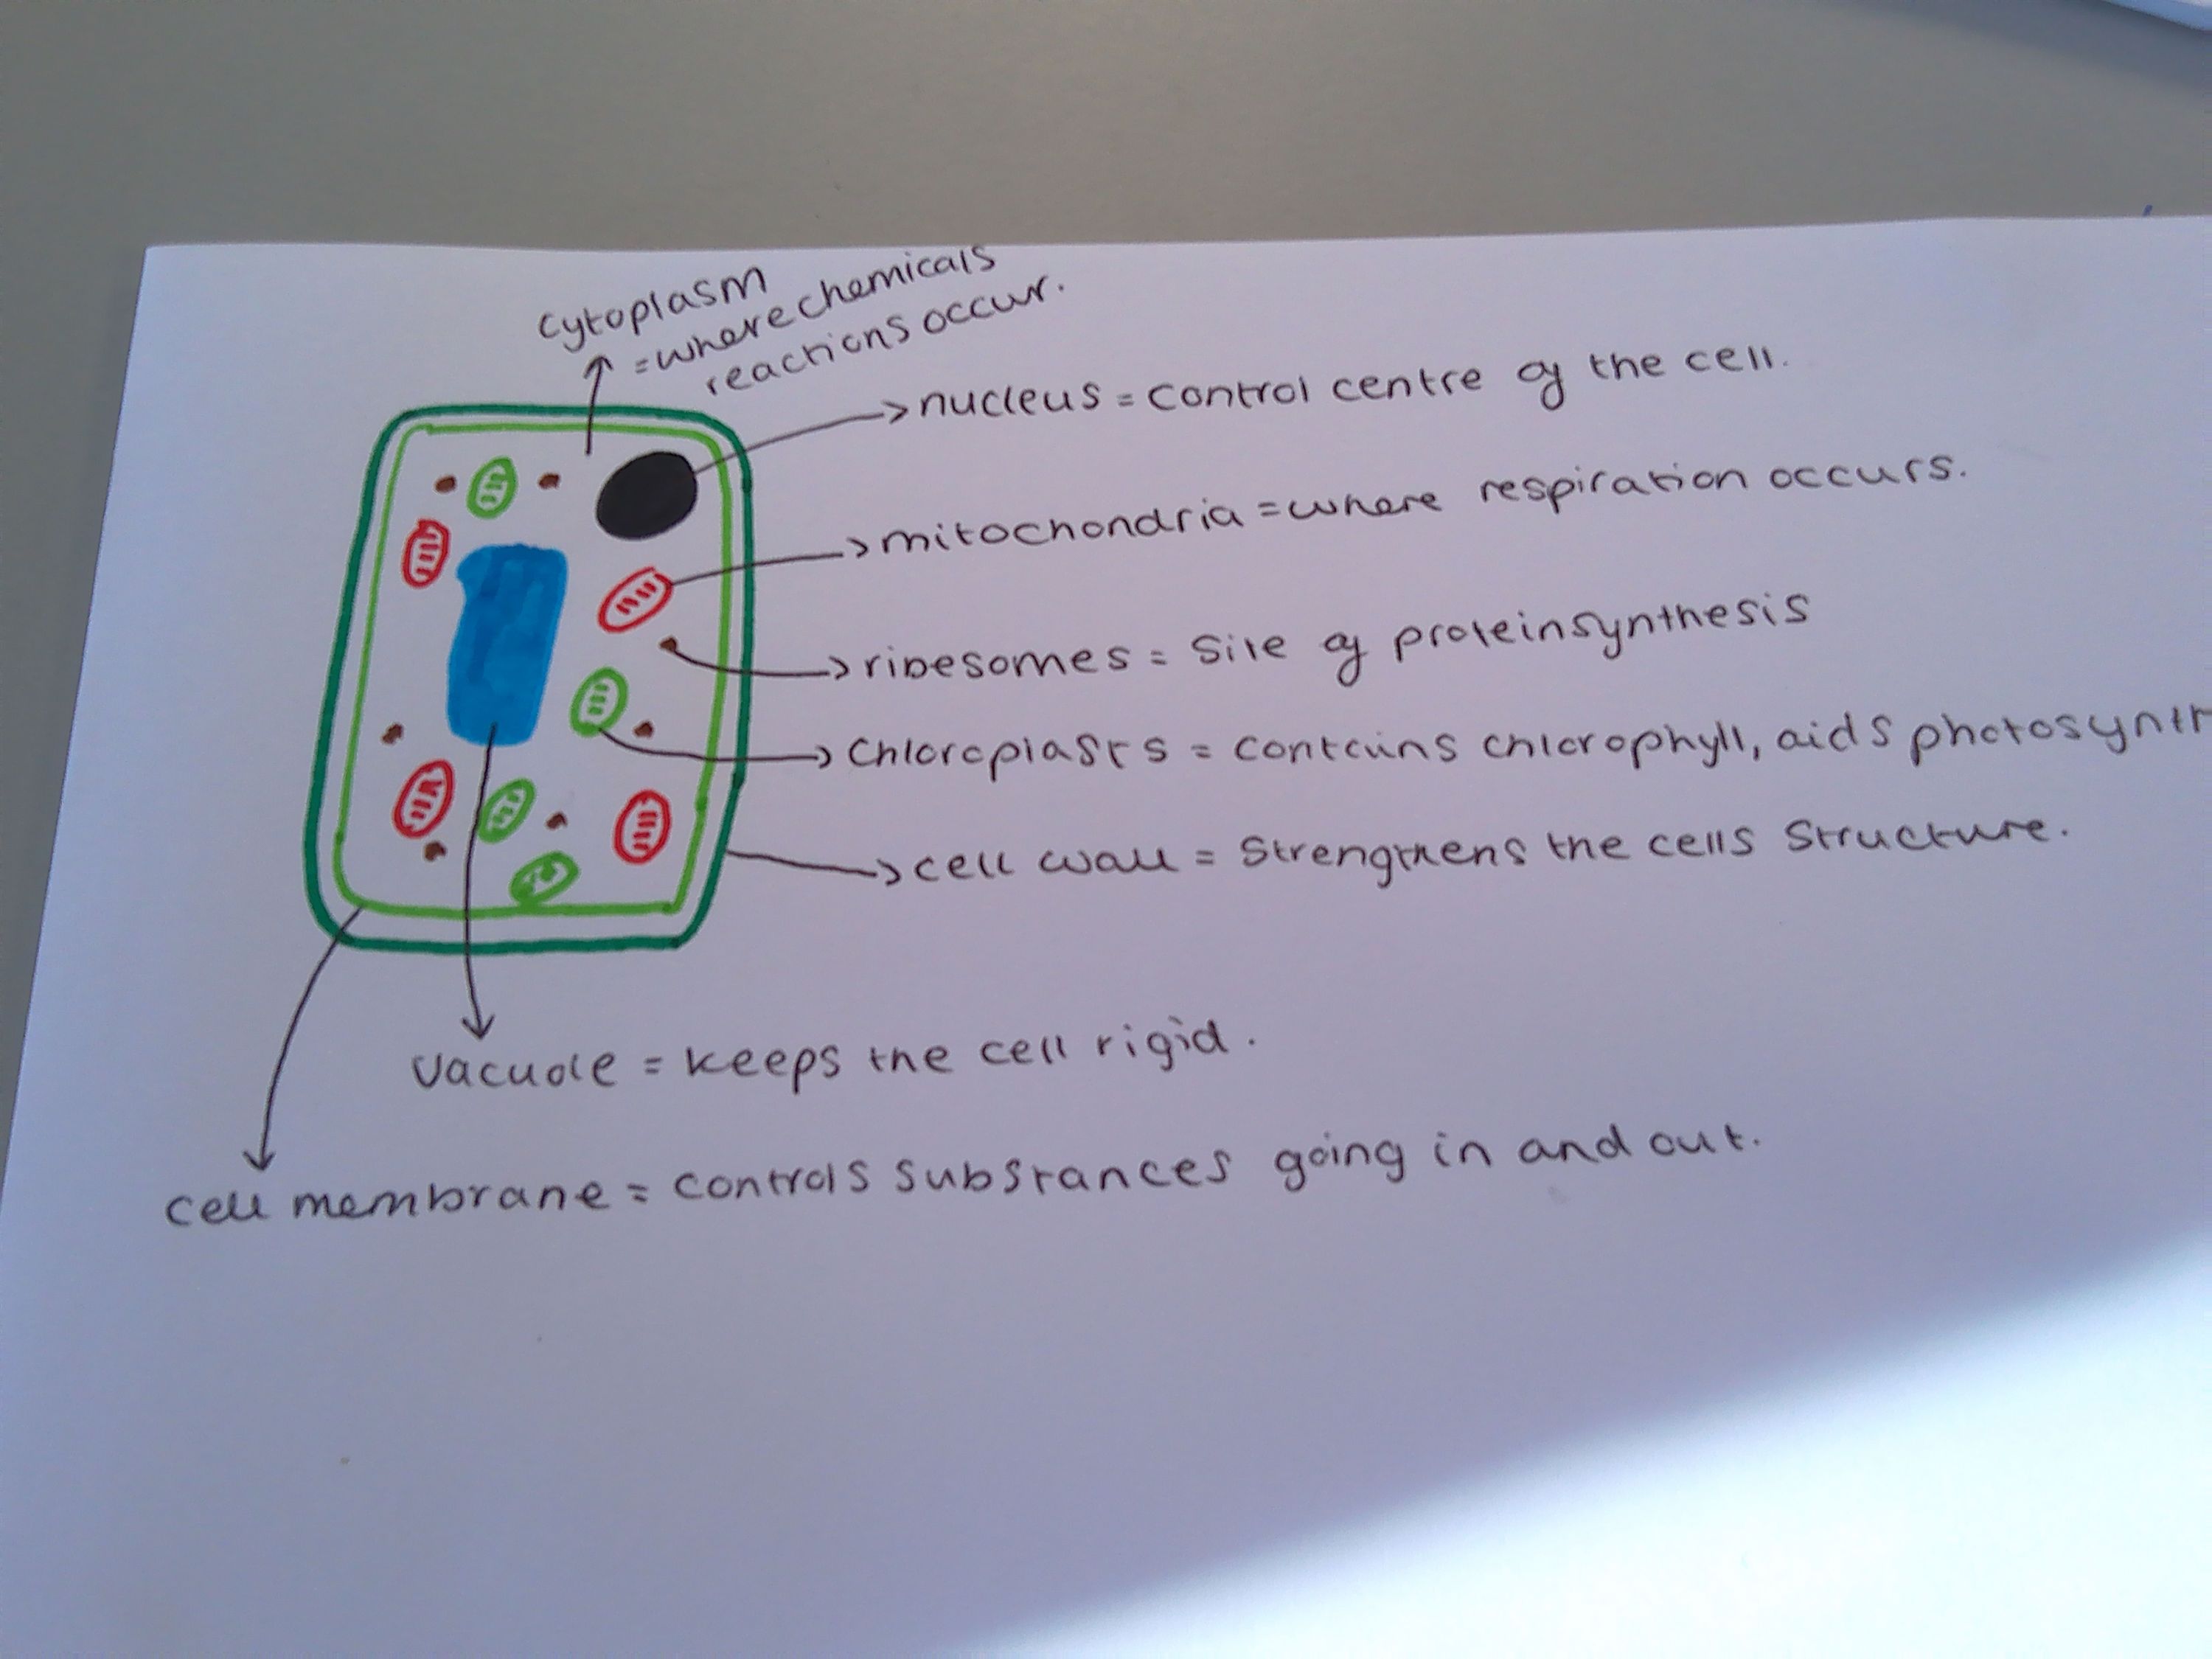 cytoplasm
=where chemicals
reactions occur.
nucleus = control centre of the cell.
mitochondria = where respiration occurs.
ribesomes = site of proteinsynthesis
Chloroplasts = contains chlorophyll, aids photosynth
cell wall = strengthens the cells structure.
vacuole = keeps the cell rigid.
cell membrane = controls substances going in and out.